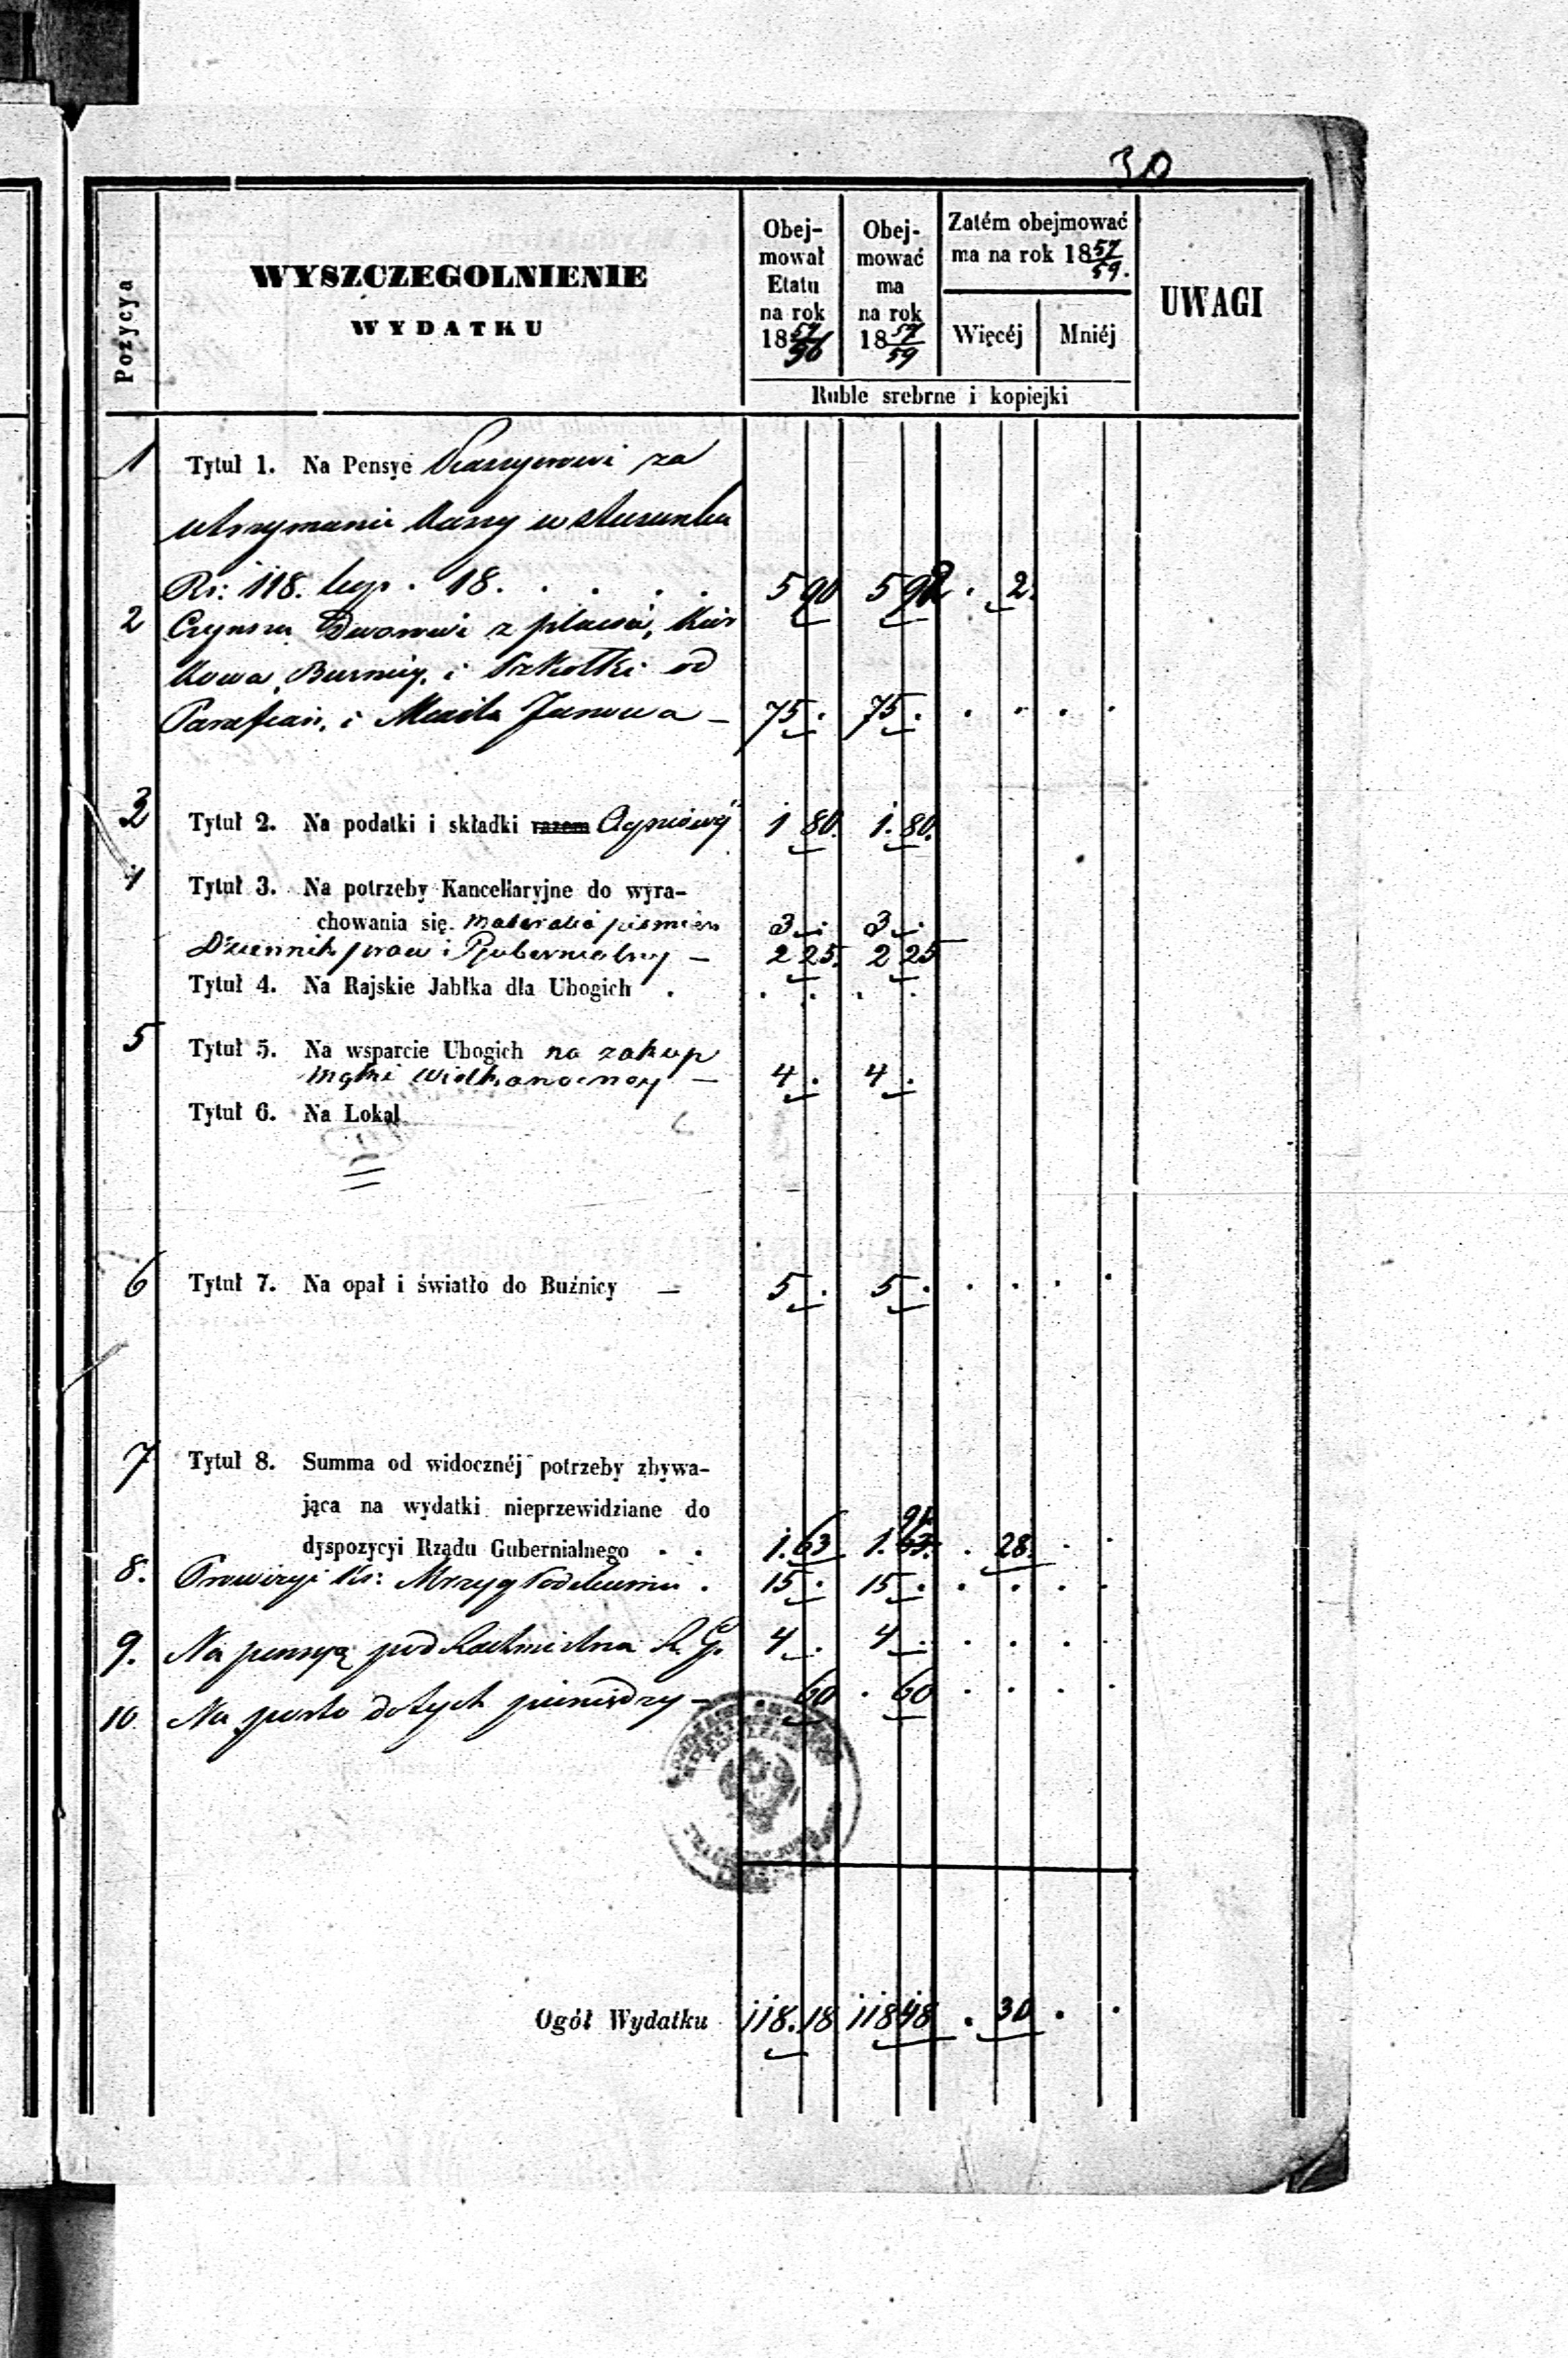 30
Pozycya
WYSZCZEGOLNIENIE
WYDATKU
Obej-
mował
Etatu
na rok
18 57/56
Obej-
mować
ma
na rok
18 57/59
Zatém obejmować
ma na rok 18 57/59.
Więcéj
Mniéj
UWAGI
Ruble srebrne i kopiejki
1 Tytuł 1. Na Pensye Kassyerowi za
utrzymanie Kassy w stosunku
Rs: 118. kop. 18. . . . . 5 90 5 92 . 2.
2 Czynszu Dworowi z placów, Kir
kowa, Burnicy, i Szkołki od
Parafian, i Miasta Janowa – 75 . 75 . . . . .
3 Tytuł 2. Na podatki i składki razem Ogniowéj 1 80. 1. 80.
4 Tytuł 3. Na potrzeby Kancellaryjne do wyra-
chowania się. Materiałó piśmien 3 . 3 .
Dziennik praw i Gubernialny – 2 25. 2 25
Tytuł 4. Na Rajskie Jabłka dla Ubogich . . . . .
5 Tytuł 5. Na wsparcie Ubogich na zakup
mąki Wielkanocnéy – 4 . 4 .
Tytuł 6. Na Lokal
6 Tytuł 7. Na opał i światło do Buźnicy – 5 . 5 . . . . .
7 Tytuł 8. Summa od widocznéj potrzeby zbywa-
jąca na wydatki nieprzewidziane do
91
dyspozycyi Rządu Gubernialnego . . 1. 63 1. 63. . 28. . .
8. Prowizyi Ks: Mrzygłod . 15 . 15 . . . . .
9. Na pensyą pod R. G. 4 . 4 . . . . .
10. Na porto dotych pieniędzy – . 60 . 60 . . . .
Ogół Wydatku 118. 18 118 48 . 30 . .